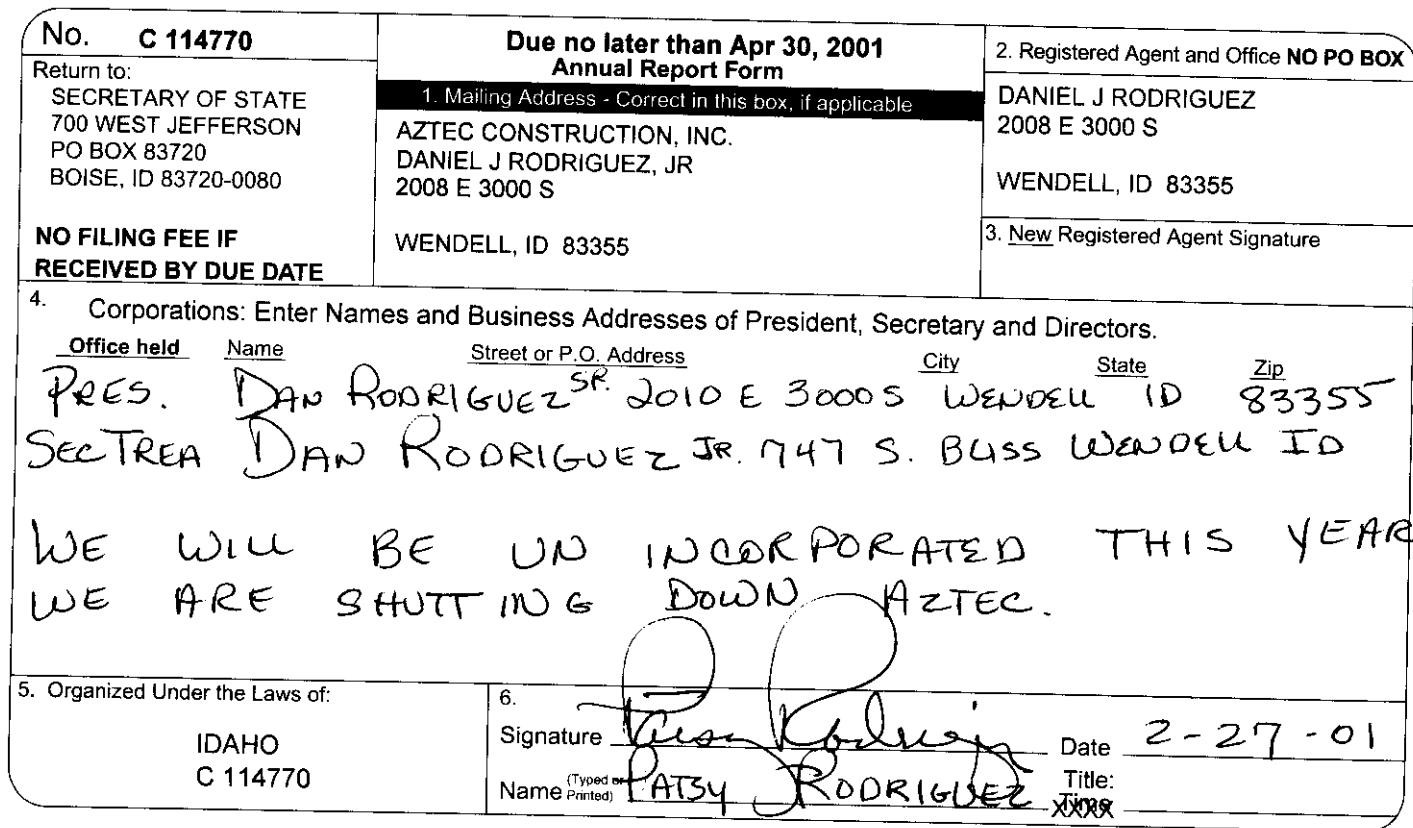 No. C 114770
Return to:
SECRETARY OF STATE
700 WEST JEFFERSON
PO BOX 83720
BOISE, ID 83720-0080
NO FILING FEE IF
RECEIVED BY DUE DATE
Due no later than Apr 30, 2001
Annual Report Form
1. Mailing Address - Correct in this box, if applicable
AZTEC CONSTRUCTION, INC.
DANIEL J RODRIGUEZ, JR
2008 E 3000 S
WENDELL, ID 83355
2. Registered Agent and Office NO PO BOX
DANIEL J RODRIGUEZ
2008 E 3000 S
WENDELL, ID 83355
3. New Registered Agent Signature
4. Corporations: Enter Names and Business Addresses of President, Secretary and Directors.
Office held Name Street or P.O. Address City State Zip
PRES. DAN RODRIGUEZ SR. 2010 E 3000 S WENDELL ID 83355
SEC TREA DAN RODRIGUEZ JR. 747 S. BLISS WENDELL ID
WE WILL BE UN INCORPORATED THIS YEAR
WE ARE SHUTTING DOWN AZTEC.
5. Organized Under the Laws of:
IDAHO
C 114770
6.
Signature Patsy Rodriguez Date 2-27-01
Name (Typed or Printed) PATSY RODRIGUEZ Title: